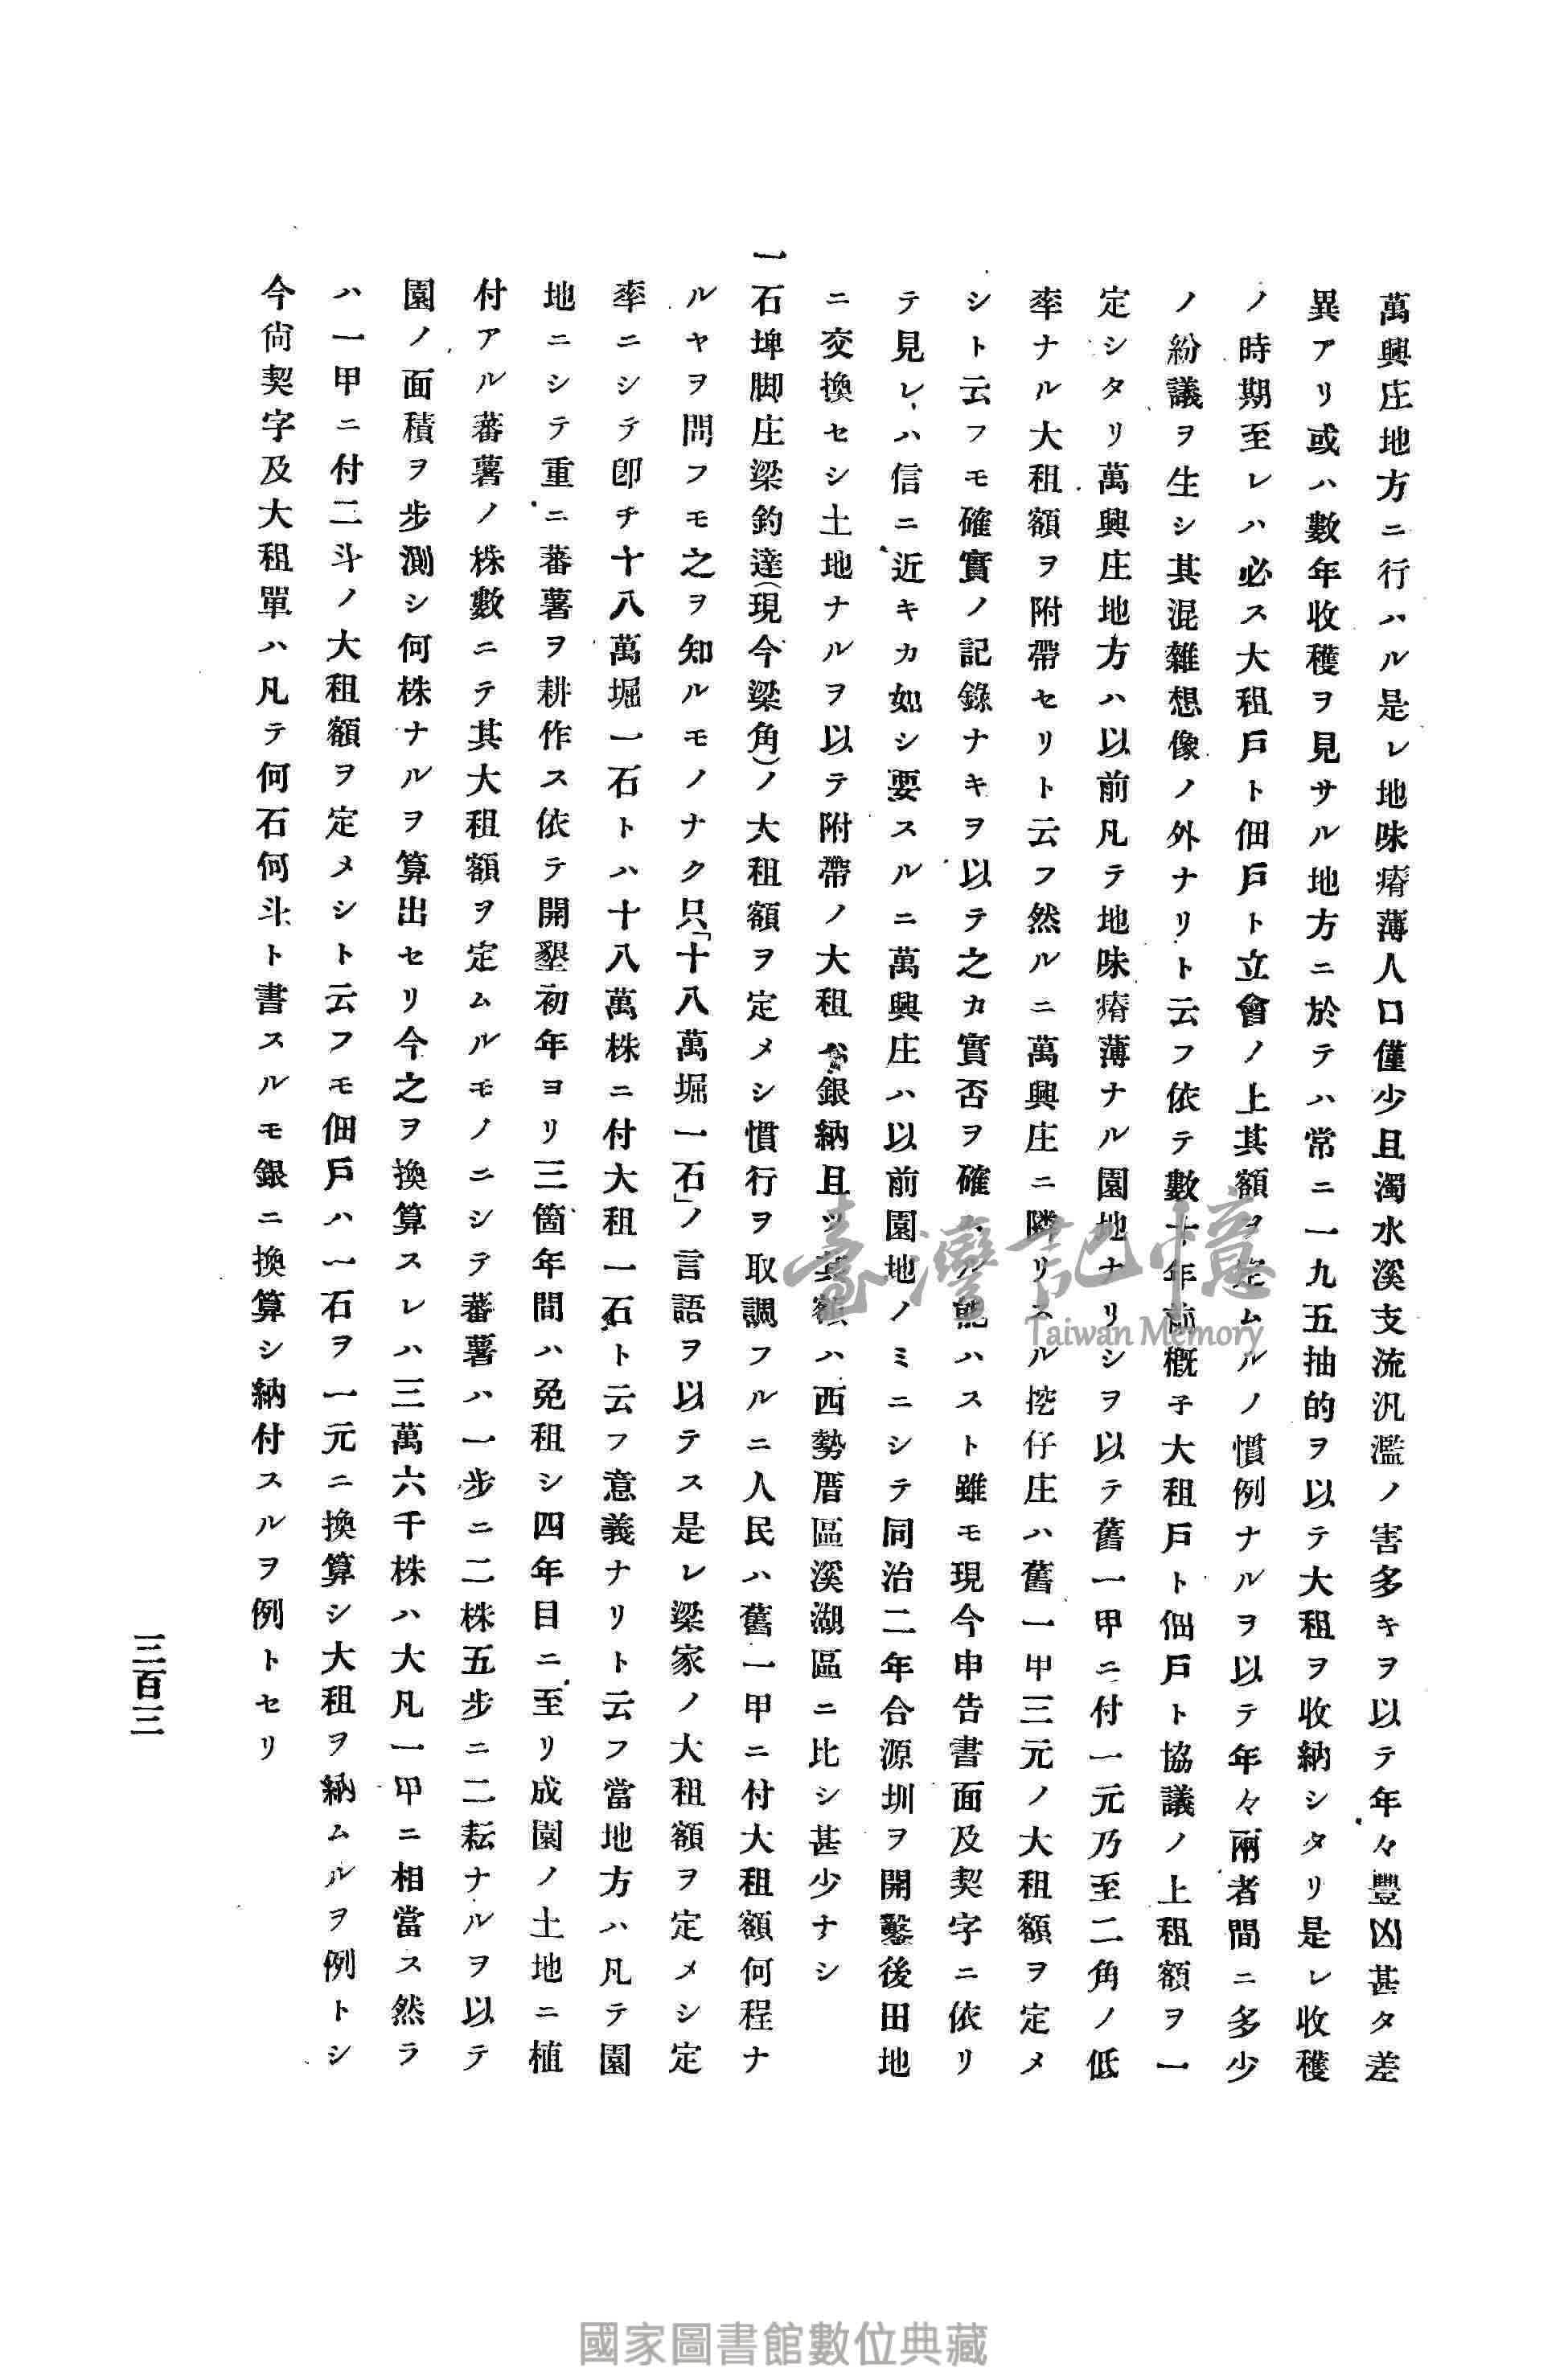 萬興庄地方ニ行ハル是レ地味瘠薄人口僅少且濁水溪支流汎濫ノ害多キヲ以テ年々豐凶甚タ差
異アリ或ハ數年收穫ヲ見サル地方ニ於テハ常ニ一九五抽的ヲ以テ大租ヲ收納シタリ是レ收穫
ノ時期至レハ必ス大租戶ト佃戶ト立會ノ上其額ヲ定ムルノ慣例ナルヲ以テ年々兩者間ニ多少
ノ紛議ヲ生シ其混雜想像ノ外ナリト云フ依テ數十年前概子大租戶ト佃戶ト協議ノ上租額ヲ一
定シタリ萬興庄地方ハ以前凡テ地味瘠薄ナル園地ナリシヲ以テ舊一甲ニ付一元乃至二角ノ低
率ナル大租額ヲ附帶セリト云フ然ルニ萬興庄ニ隣リスル挖仔庄ハ舊一甲三元ノ大租額ヲ定メ
シト云フモ確實ノ記錄ナキヲ以テ之カ實否ヲ確ムル能ハスト雖モ現今申告書面及契字ニ依リ
テ見レハ信ニ近キカ如シ要スルニ萬興庄ハ以前園地ノミニシテ同治二年合源圳ヲ開鑿後田地
ニ交換セシ土地ナルヲ以テ附帶ノ大租ハ銀納且ツ其額ハ西勢厝區溪湖區ニ比シ甚少ナシ
一石埤脚庄梁釣達(現今梁角)ノ大租額ヲ定メシ慣行ヲ取調フルニ人民ハ舊一甲ニ付大租額何程ナ
ルヤヲ問フモ之ヲ知ルモノナク只「十八萬堀一石」ノ言語ヲ以テス是レ梁家ノ大租額ヲ定メシ定
率ニシテ卽チ十八萬堀一石トハ十八萬株ニ付大租一石ト云フ意義ナリト云フ當地方ハ凡テ園
地ニシテ重ニ蕃薯ヲ耕作ス依テ開墾初年ヨリ三箇年間ハ免租シ四年目ニ至リ成園ノ土地ニ植
付アル蕃薯ノ株數ニテ其大租額ヲ定ムルモノニシテ蕃薯ハ一步ニ二株五步ニ二耘ナルヲ以テ
園ノ面積ヲ步測シ何株ナルヲ算出セリ今之ヲ換算スレハ三萬六千株ハ大凡一甲ニ相當ス然ラ
ハ一甲ニ付二斗ノ大租額ヲ定メシト云フモ佃戶ハ一石ヲ一元ニ換算シ大租ヲ納ムルヲ例トシ
今尙契字及大租單ハ凡テ何石何斗ト書スルモ銀ニ換算シ納付スルヲ例トセリ
三百三
臺灣記憶
Taiwan Memory
國家圖書館數位典藏